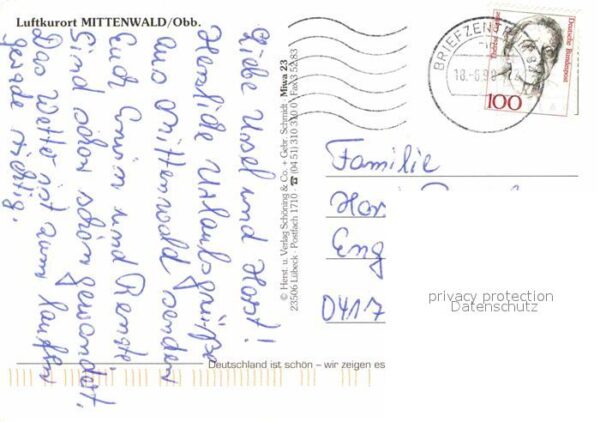 Luftkurort MITTENWALD/Obb.
Liebe Ursel und Horst!
Herzliche Urlaubsgrüße
aus Mittenwald senden
Euch Erwin und Renate.
Sind schon schön gewandert.
Das Wetter ist zum laufen
gerade richtig.
© Herst. u. Verlag Schöning & Co. + Gebr. Schmidt · Miwa 23
23506 Lübeck · Postfach 1710 · ☎ (04 51) 310 310
BRIEFZENTR
Deutsche Bundespost
100
Familie
Hor
Eng
0417
privacy protection
Datenschutz
Deutschland ist schön – wir zeigen es